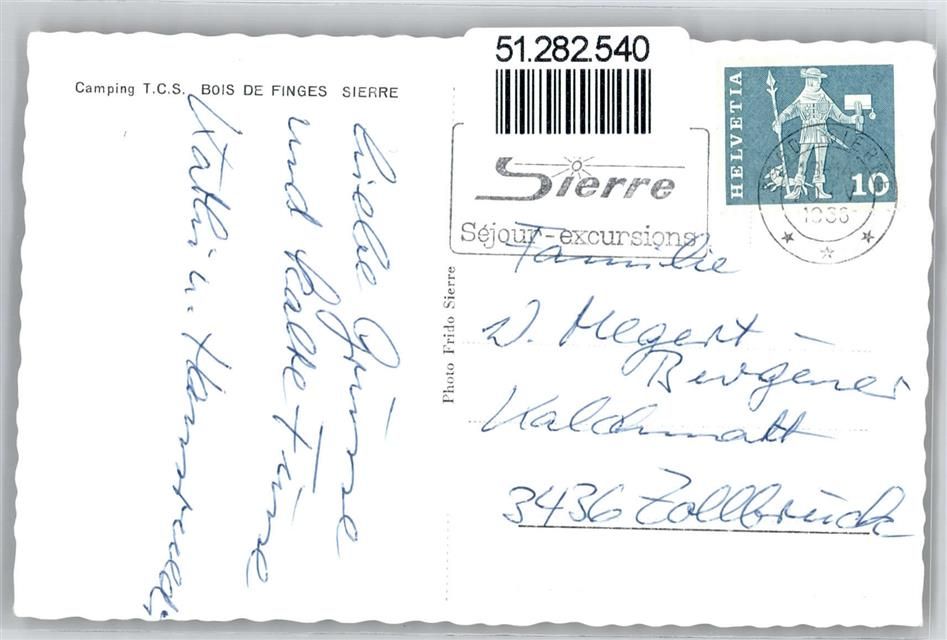 Camping T.C.S. BOIS DE FINGES SIERRE
liebe Grüsse
und kalte Füsse
Kathi u. Hansruedi
51.282.540
Sierre
Séjour-excursions
HELVETIA
10
SIERRE
Photo Frido Sierre
Familie
W. Megert -
Bürgener
Kalchmatt
3436 Zollbrück